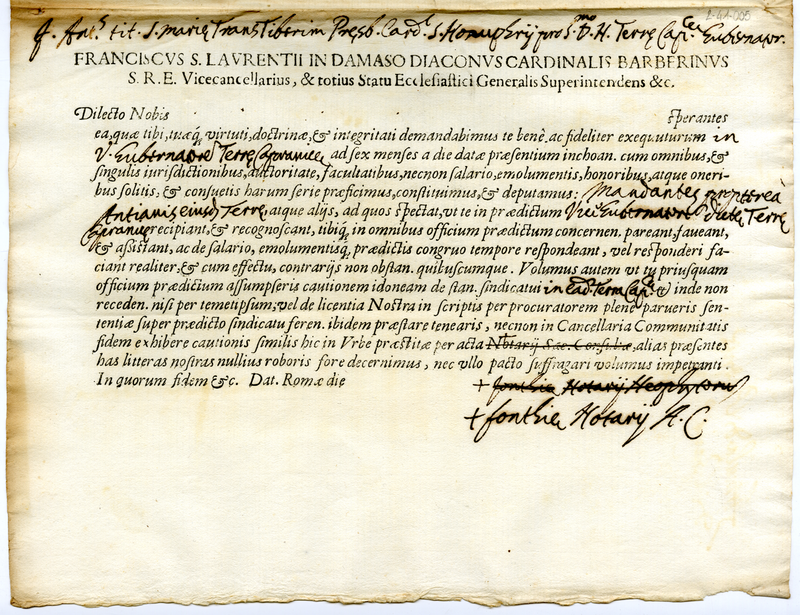 L-44-005
F. Ant.s tit. S. mariȩ Transtiberim Presb. Card. S. Honuphrij pro S.mo D. N. Terrȩ Gubernator.
FRANCISCVS S. LAVRENTII IN DAMASO DIACONVS CARDINALIS BARBERINVS
S. R. E. Vicecancellarius, & totius Statu Ecclesiastici Generalis Superintendens &c.
Dilecto Nobis sperantes
ea, quæ tibi, tuæq́; virtuti, doctrinæ, & integritati demandabimus te benè. ac fideliter exequuturum in
V. Gubernatorẽ Terrȩ Capranicȩ ad sex menses a die datæ præsentium inchoan. cum omnibus, &
singulis iurisdictionibus, auctoritate, facultatibus, necnon salario, emolumentis, honoribus, atque oneri-
bus solitis, & consuetis harum serie præficimus, constituimus, & deputamus: Mandantes proptereà
Antianis eiusd. Terrȩ, atque alijs, ad quos spectat, vt te in prædictum Vice Gubernatorẽ dictȩ Terrȩ
Capranicȩ recipiant, & recognoscant, tibiq́; in omnibus officium prædictum concernen. pareant, faueant,
& assistant, ac de salario, emolumentisq́; prædictis congruo tempore respondeant, vel responderi fa-
ciant realiter, & cum effectu, contrarijs non obstan. quibuscumque. Volumus autem vt tu priusquam
officium prædictum assumpseris cautionem idoneam de stan. sindicatui in ead. Terra & inde non
receden. nisi per temetipsum, vel de licentia Nostra in scriptis per procuratorem plenè parueris sen-
tentiæ super prædicto sindicatu feren. ibidem præstare tenearis, necnon in Cancellaria Communitatis
fidem exhibere cautionis similis hic in Vrbe præstitæ per acta Notarij Sac. Consultæ, alias præsentes
has litteras nostras nullius roboris fore decernimus, nec vllo pacto suffragari volumus impetranti.
In quorum fidem &c. Dat. Romæ die
+ fonthia Notarij Neophytorum
+ fonthia Notarij A. C.